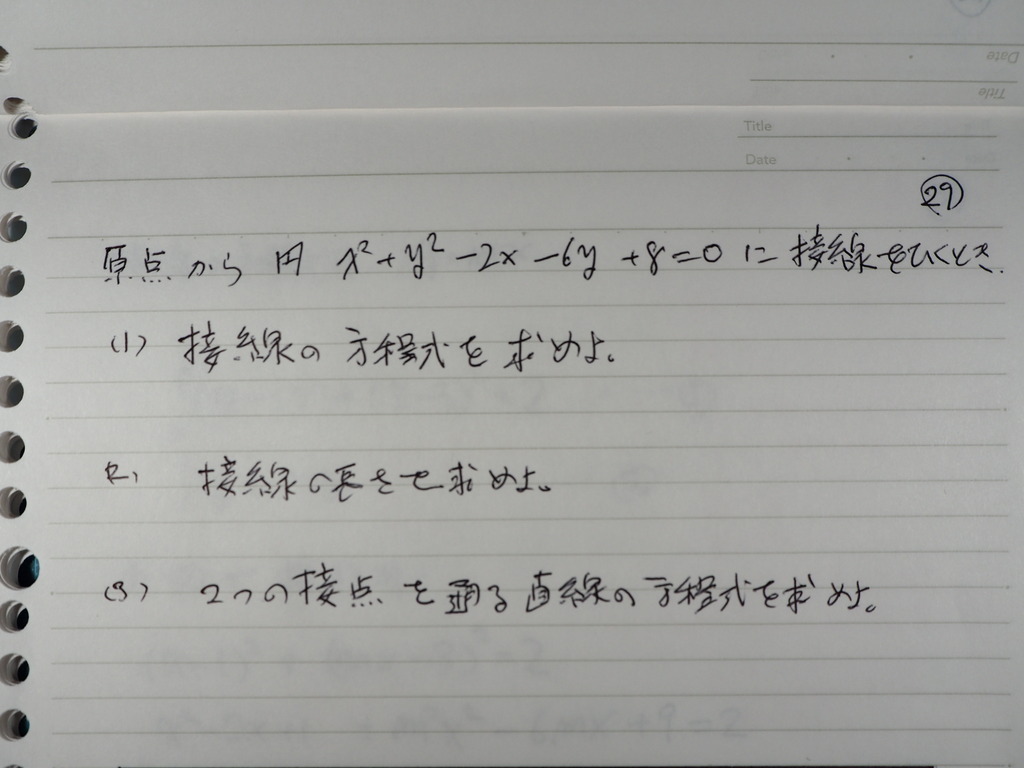 Date
Title
Title
Date
29
原点から 円 x²+y²-2x-6y+8=0 に接線をひくとき.
(1) 接線の方程式を求めよ。
(2) 接線の長さを求めよ。
(3) 2つの接点を通る直線の方程式を求めよ。